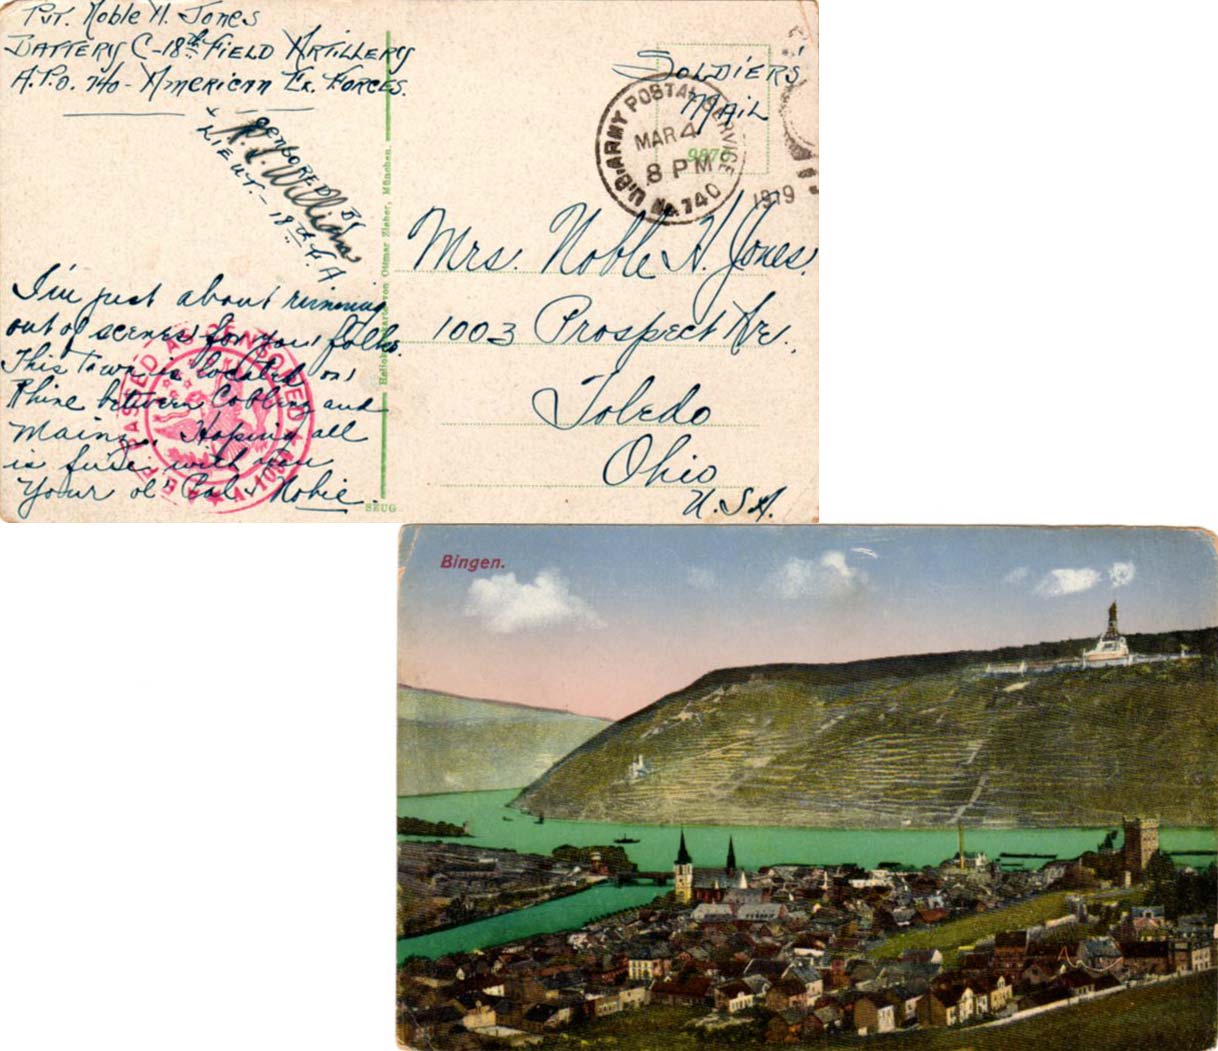 Pvt. Noble H. Jones
Battery C-18th Field Artillery
A.P.O. 740 - American Ex. Forces.
Censored By
Lieut. - 18th F.A
Soldiers'
Mail
U.S. ARMY POSTAL SERVICE
MAR 4
8 PM
No. 740
1919
9876
Mrs. Noble H. Jones.
1003 Prospect Ave.
Toledo
Ohio
U.S.A.
I'm just about running
out of scenes for you folks.
This Town is located on
Rhine between Coblinz and
Mainz. Hoping all
is fine with you
Your ol' Pal Nobie.
PASSED AS CENSORED
von Ottmar Zieher, München.
Bingen.